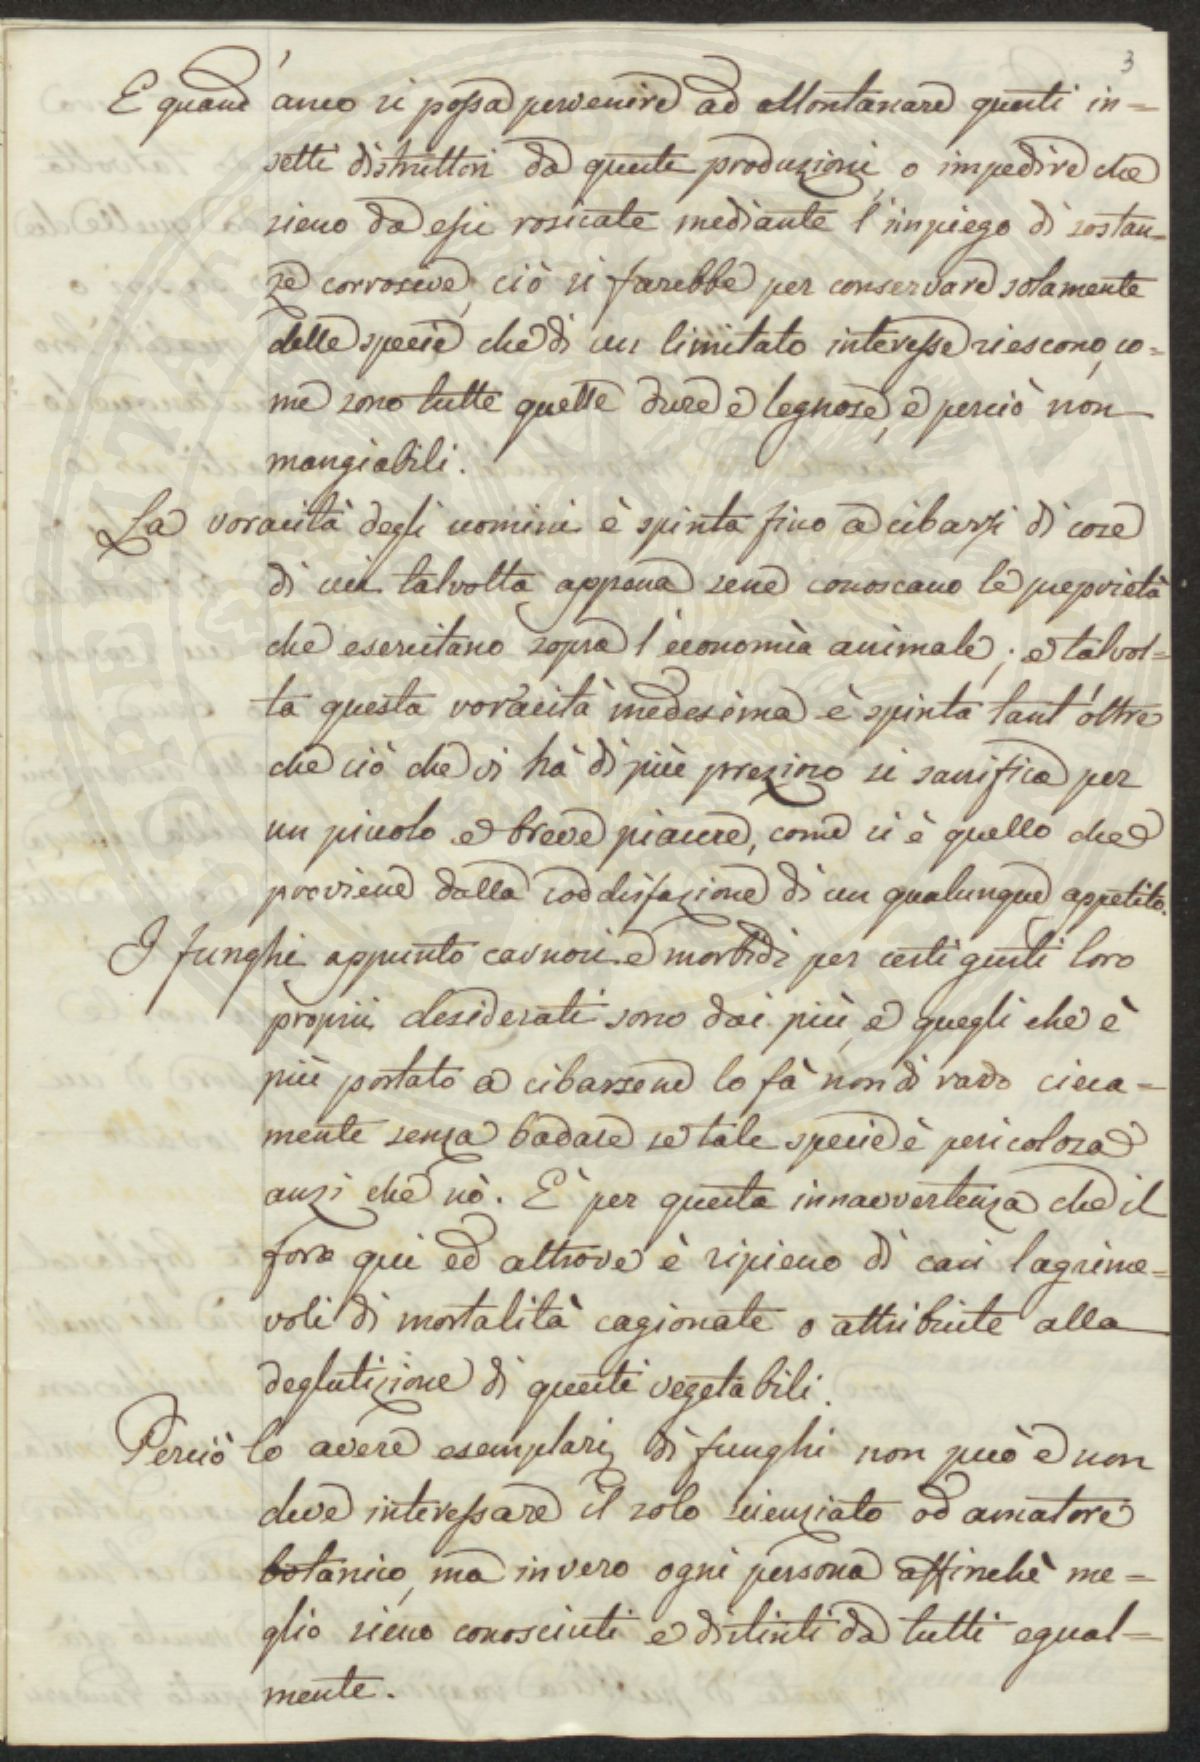 3
E quand'anco si possa pervenire ad allontanare questi in=
setti distruttori da queste produzioni, o impedire che
sieno da essi rosicate mediante l'impiego di sostan=
ze corrosive, ciò si farebbe per conservare solamente
delle specie che di un limitato interesse riescono, co=
me sono tutte quelle dure e legnose, e perciò non
mangiabili.
La voracità degli uomini è spinta fino a cibarsi di cose
di cui talvolta appena sene conoscano le proprietà
che esercitano sopra l'economia animale; e talvol=
ta questa voracità medesima è spinta tant'oltre
che ciò che vi hà di più prezioso si sacrifica per
un piccolo e breve piacere, come si è quello che
proviene dalla soddisfazione di un qualunque appetito.
I funghi appunto carnosi e morbidi per certi gusti loro
proprii desiderati sono dai più, e quegli che è
più portato a cibarsene lo fà non di rado cieca=
mente senza badare se tale specie è pericolosa
anzi che nò. E' per questa innavvertenza che il
foro qui ed altrove è ripieno di casi lagrime=
voli di mortalità cagionate o attribuite alla
deglutizione di questi vegetabili.
Perciò lo avere esemplari di funghi non può e non
deve interessare il solo scienziato od amatore
botanico, ma invero ogni persona affinchè me=
glio sieno conosciuti e distinti da tutti egual=
mente.